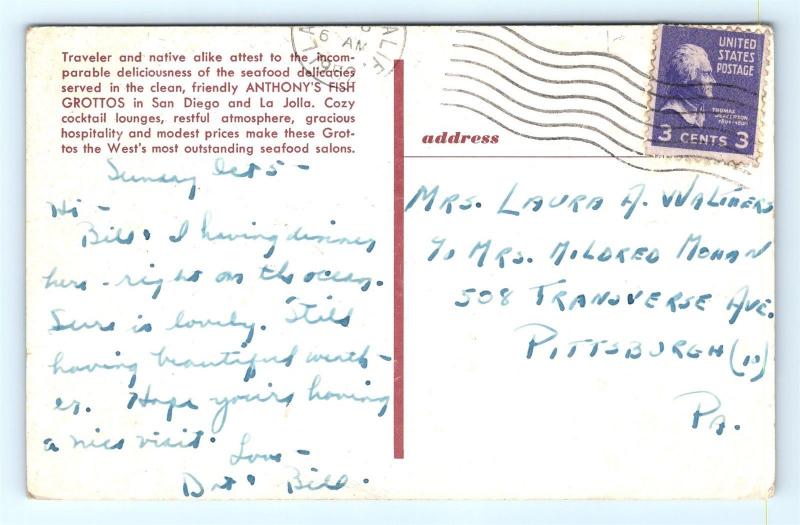 Traveler and native alike attest to the incom-
parable deliciousness of the seafood delicacies
served in the clean, friendly ANTHONY'S FISH
GROTTOS in San Diego and La Jolla. Cozy
cocktail lounges, restful atmosphere, gracious
hospitality and modest prices make these Grot-
tos the West's most outstanding seafood salons.
Sunday Oct 5 -
Hi -
Bill & I having dinner
here - right on the ocean.
Sure is lovely. Still
having beautiful weath-
er. Hope you're having
a nice visit.
Love -
Dot & Bill.
6 AM
CALIF
UNITED
STATES
POSTAGE
THOMAS
JEFFERSON
1801-1809
3 CENTS 3
address
MRS. LAURA A. WALTHERS
% MRS. MILDRED MOHAN
508 TRANSVERSE AVE.
PITTSBURGH (10)
PA.